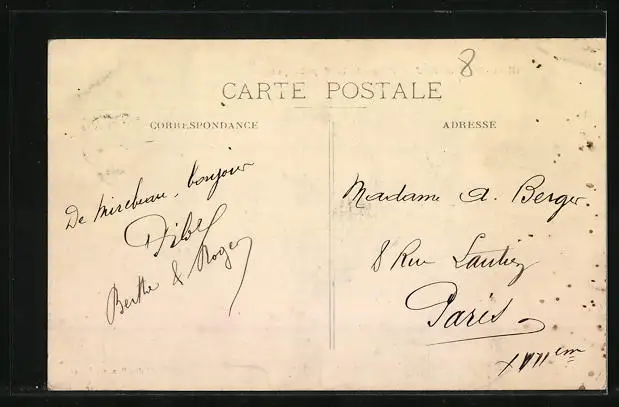 8
CARTE POSTALE
CORRESPONDANCE
De Mirebeau, bonjour
Berthe & Roger
ADRESSE
Madame A. Berger
8 Rue
Paris
XVII em